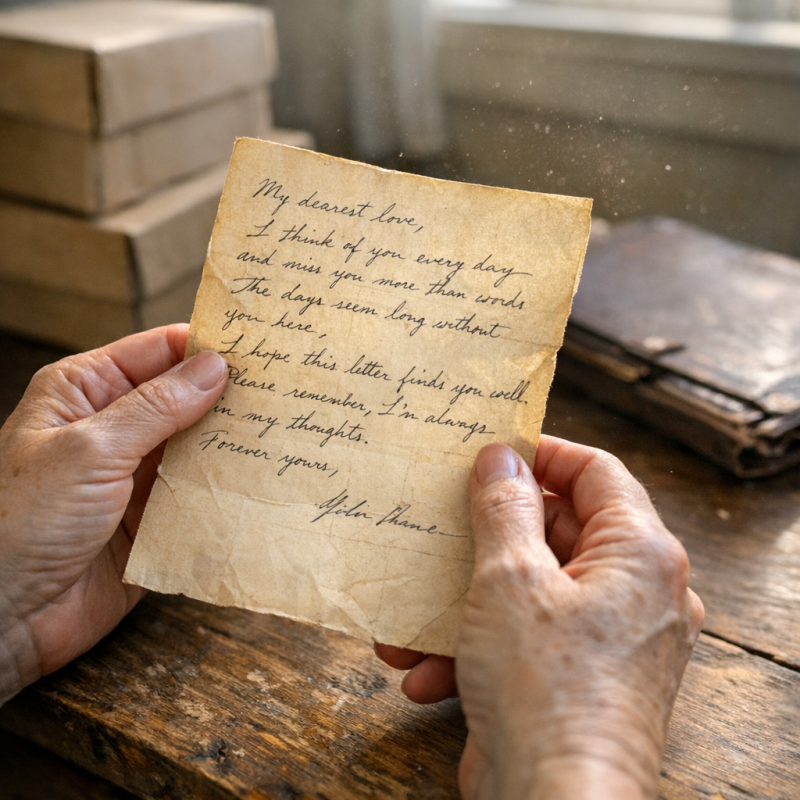 My dearest love,
I think of you every day
and miss you more than words
The days seem long without
you here,
I hope this letter finds you well.
Please remember, I'n always
in my thoughts.
Forever yours,